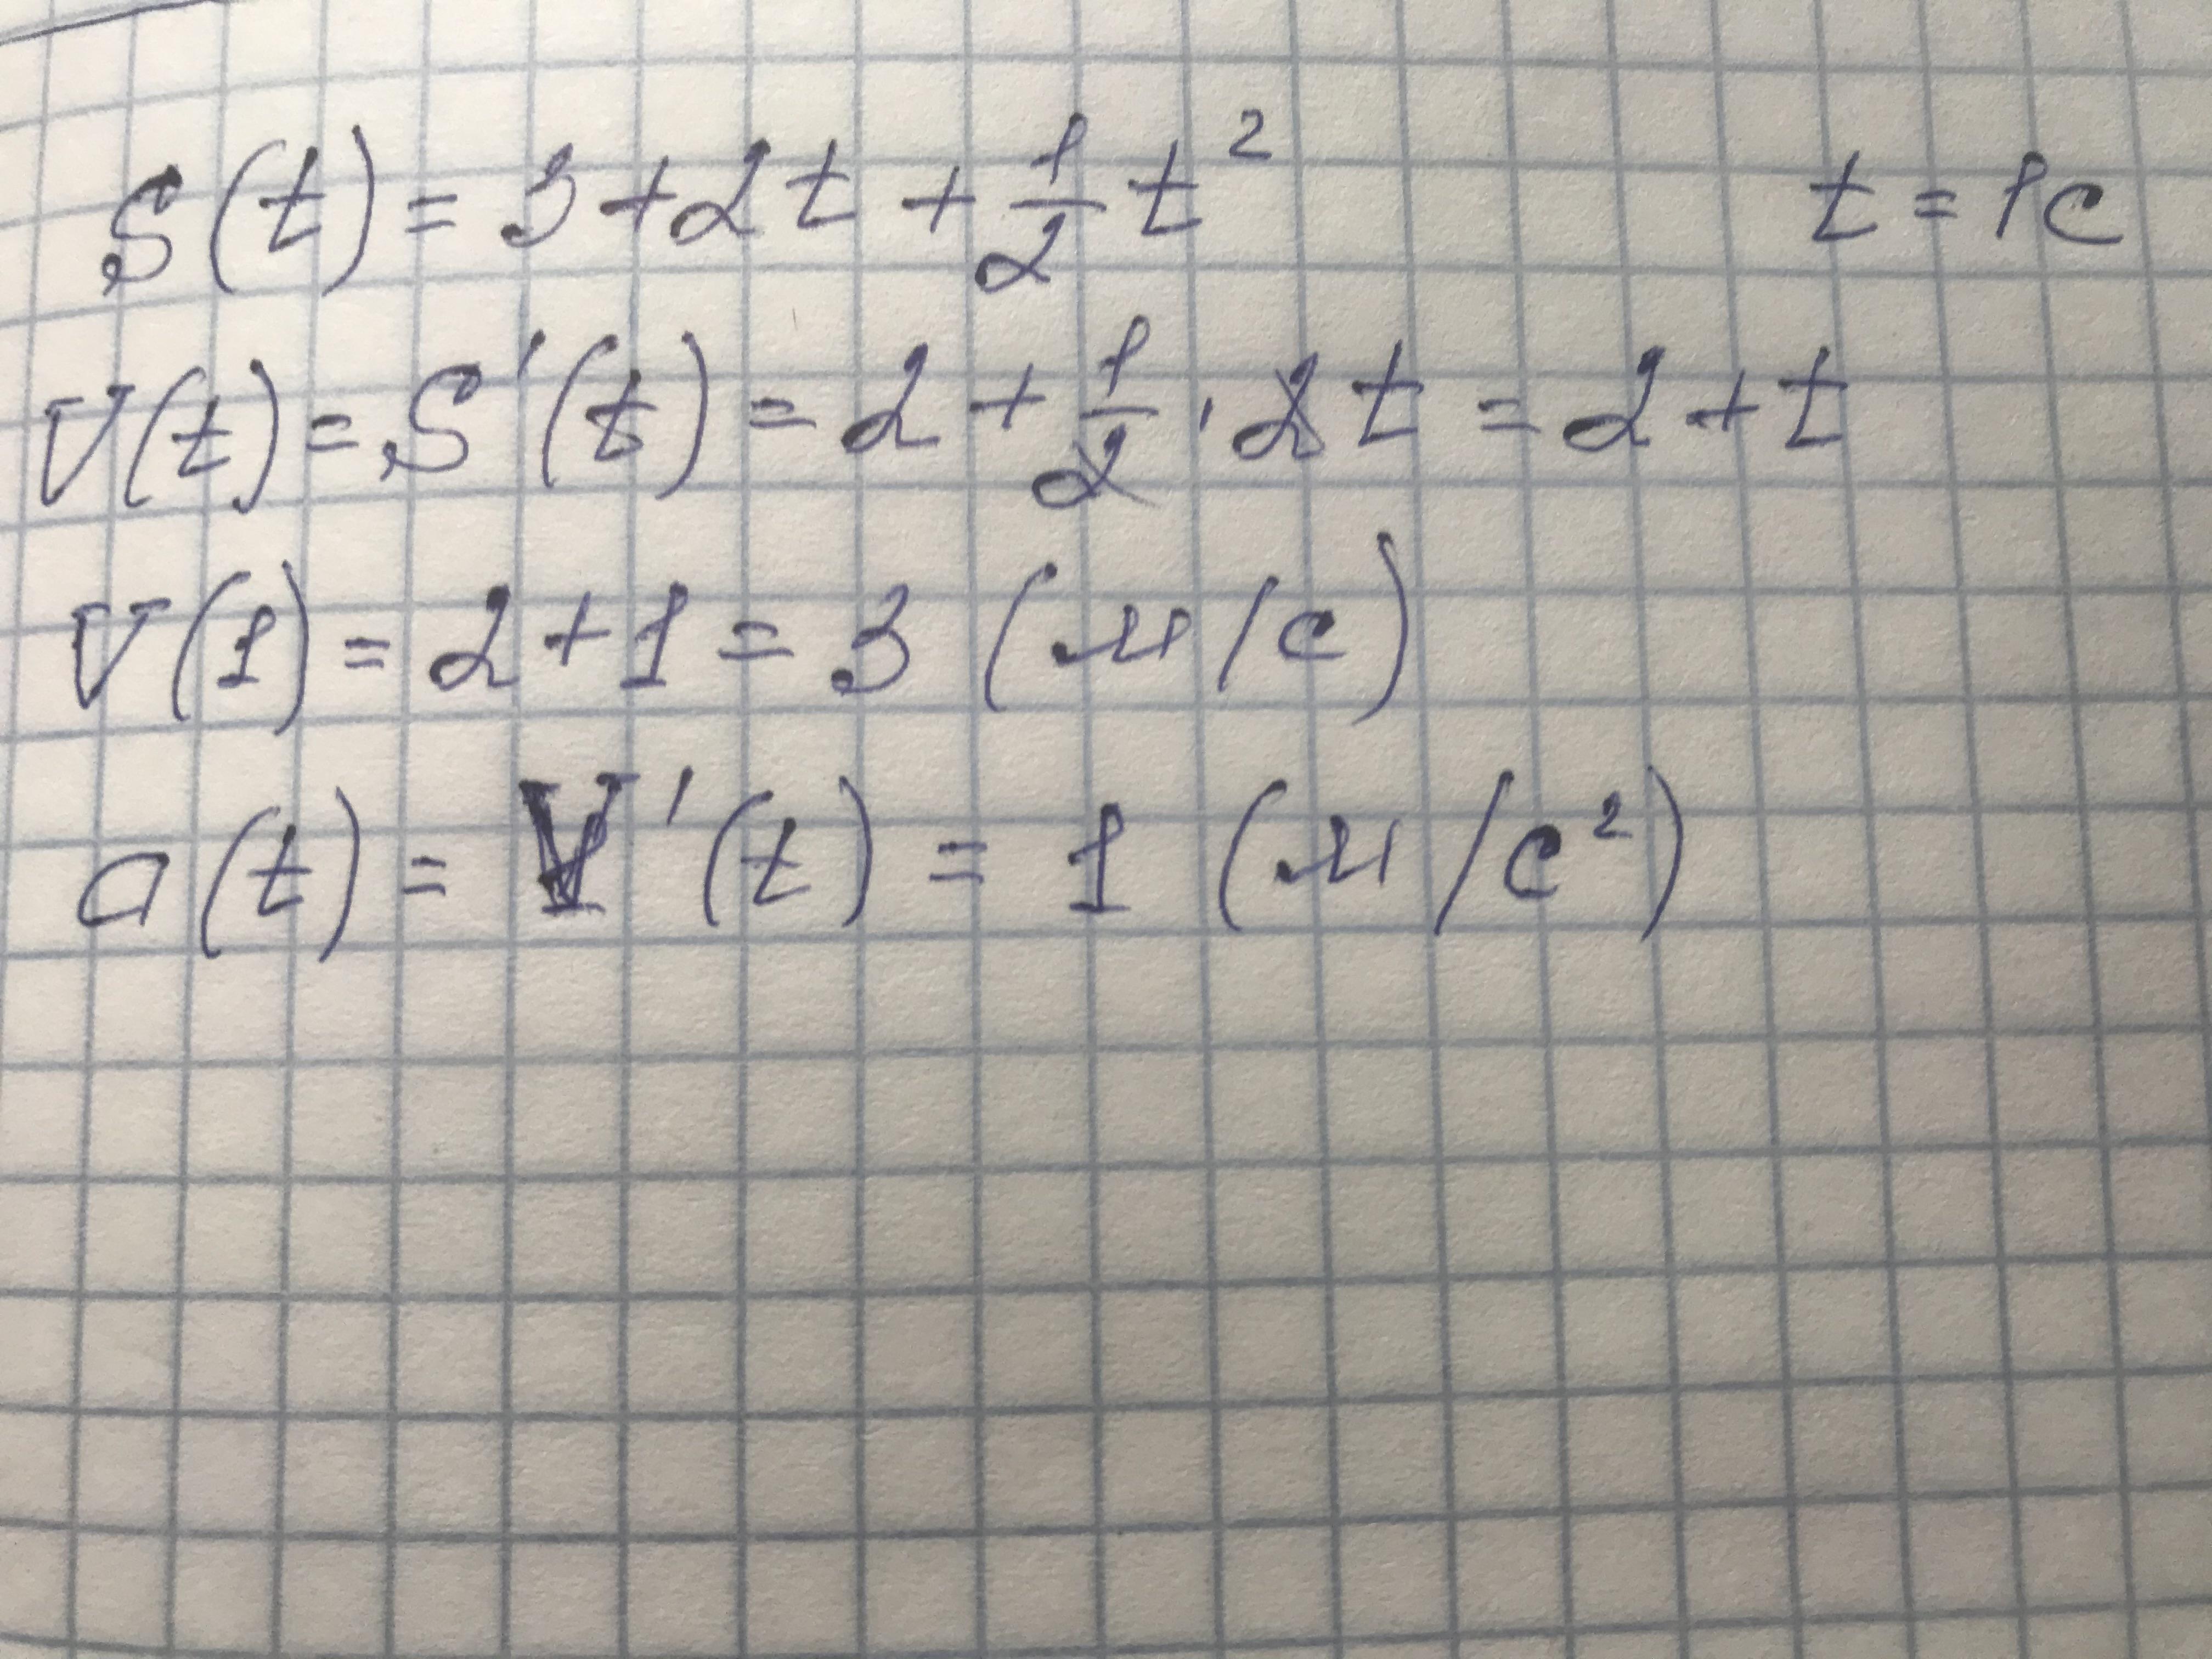 S(t) = 3 + 2t + 1/2 t² t = 1c
V(t) = S'(t) = 2 + 1/2 · 2t = 2 + t
V(1) = 2 + 1 = 3 (м/c)
a(t) = V'(t) = 1 (м/c²)